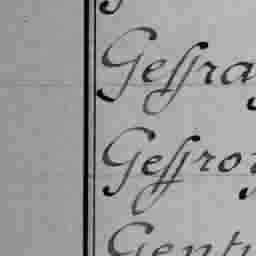 Geſſra
Geſſroy
Gentı